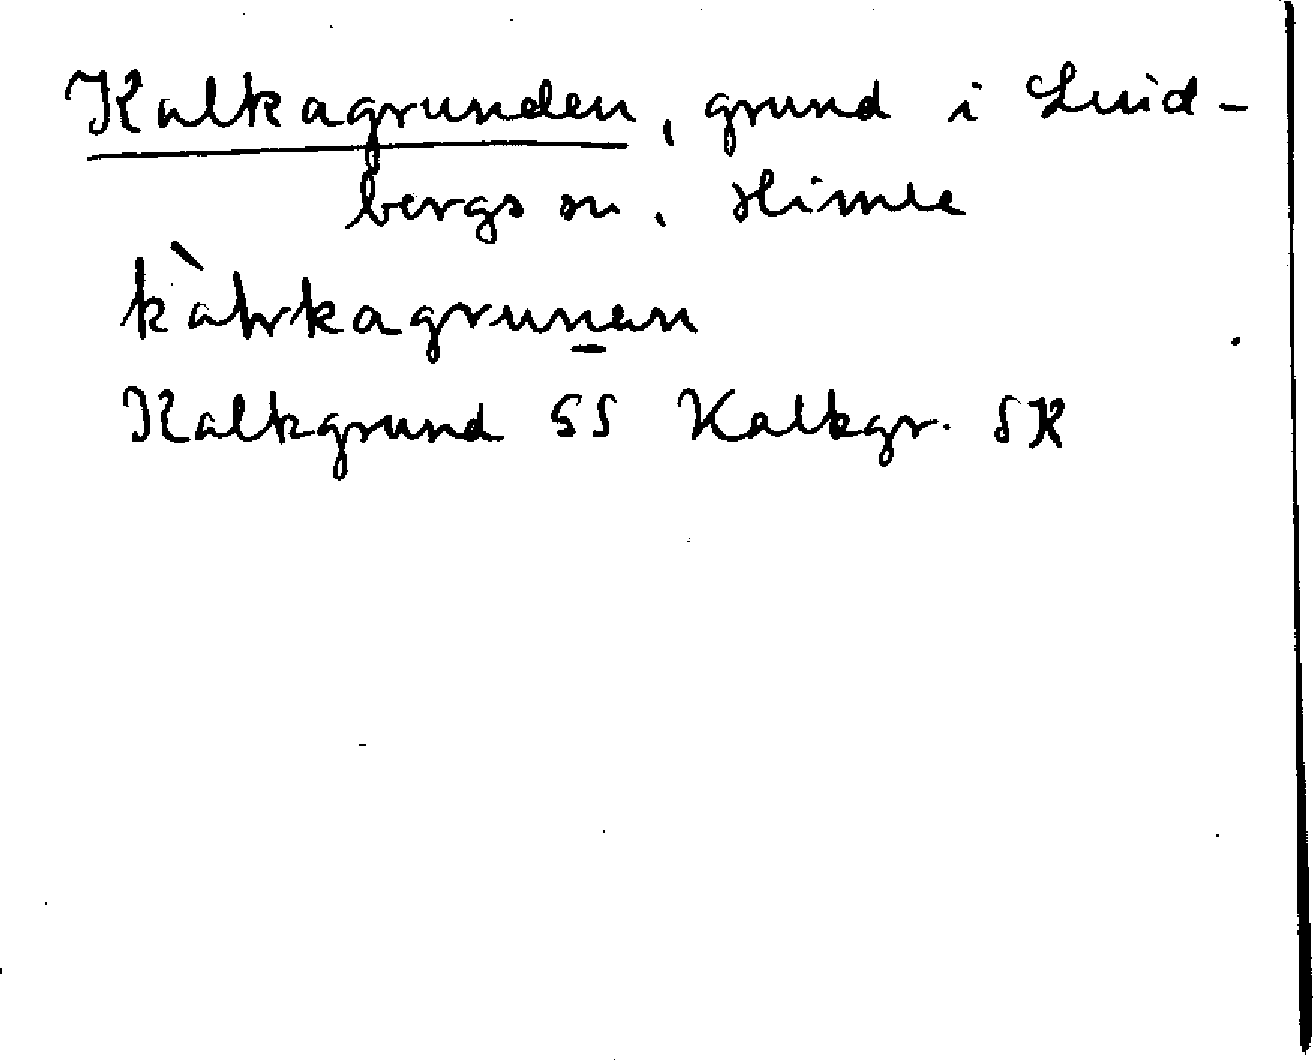 Kalkagrunden, grund i Lind-
bergs sn, Himle
kàlrkagrunen
Kalkgrund SS Kalkgr. SK